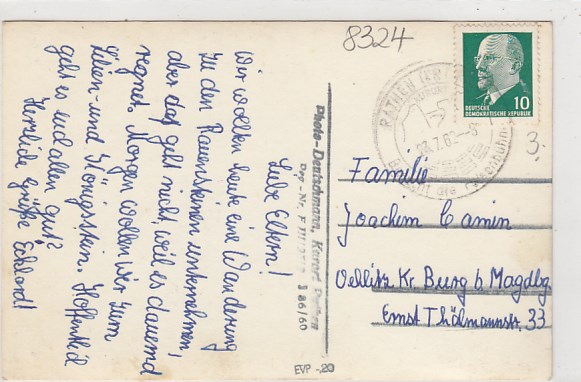 8324
Liebe Eltern!
Wir wollten heute eine Wanderung
zu den Rauensteinen unternehmen,
aber das geht nicht, weil es dauernd
regnet. Morgen wollen wir zum
Lilien- und Königsstein. Hoffentlich
geht es euch allen gut?
Herzliche Grüße Eckhard!
Photo-Deutschmann, Kurort Rathen
Reg.-Nr. F III S 86/60
EVP -.20
RATHEN
Besucht die Felsenbühne
DEUTSCHE
DEMOKRATISCHE REPUBLIK
10
3.
Familie
Joachim Camin
Kr. Burg b. Magdbg
Ernst Thälmannstr. 33